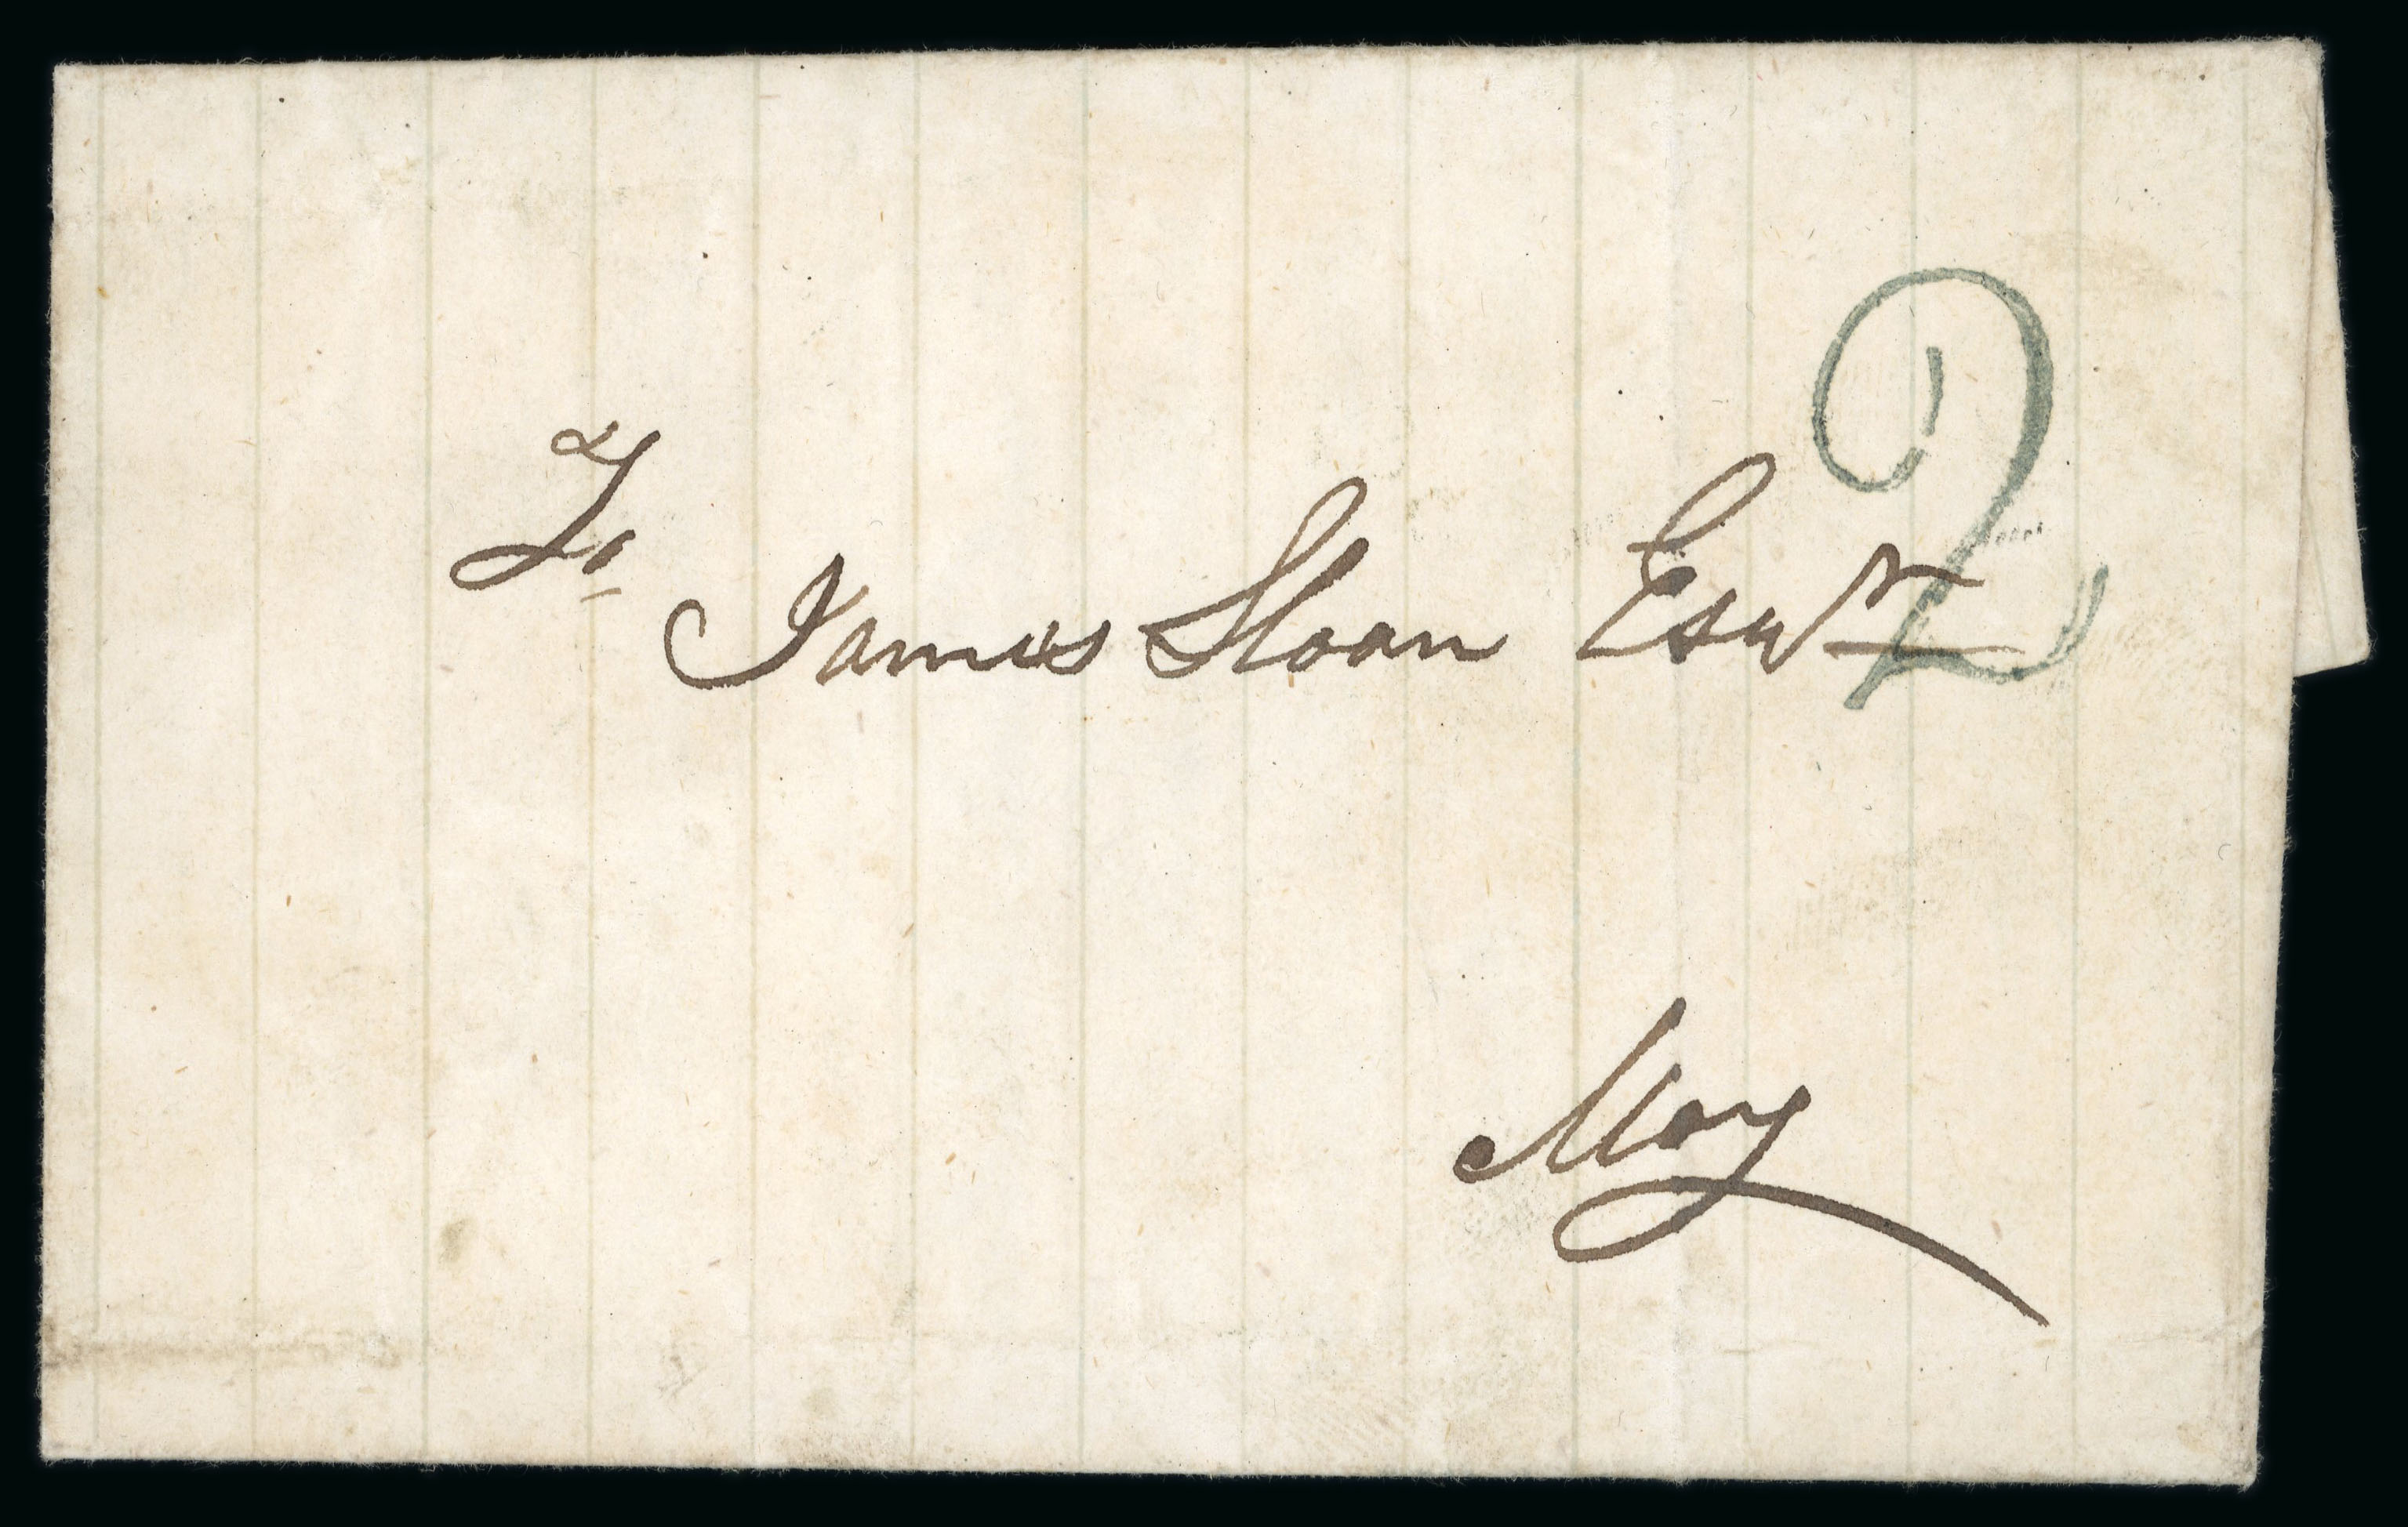 To
James Sloan Esqr
2
Moy